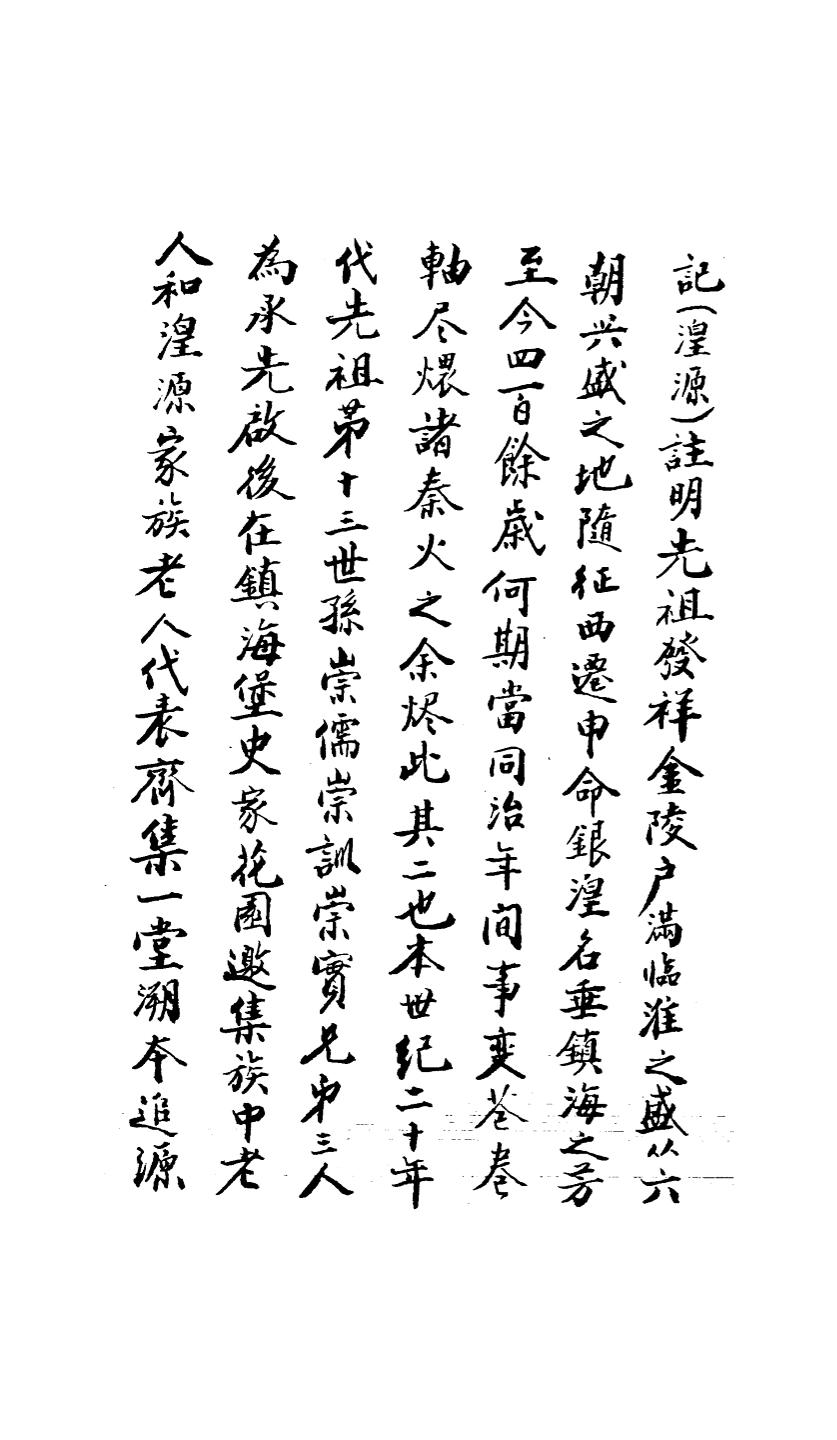 記(湟源)註明先祖發祥金陵户滿临淮之盛从六
朝兴盛之地隨征西遷申命銀湟名垂鎮海之芳
至今四百餘歲何期當同治年间事变苍卷
軸尽煨諸秦火之余烬此其二也本世纪二十年
代先祖第十三世孫崇儒崇訓崇實兄弟三人
為承先啟後在鎮海堡史家花園邀集族中老
人和湟源家族老人代表齊集一堂溯本追源